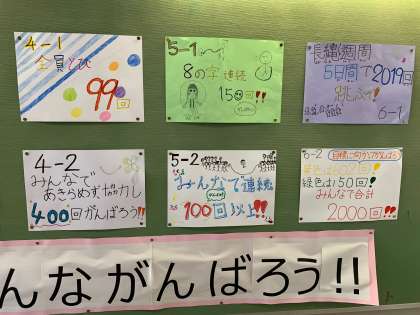 4-1
全員とび
99回
5-1
8の字連続
150回!!
長縄週間
5日間で2019回
跳ぶぞ!
6-1
4-2
みんなで
あきらめず協力し
400回がんばろう!!
5-2
みんなで連続
100回以上!!
6-2
目標に向かってがんばろう
緑色は150回!
みんなで合計
2000回!!
んながんばろう!!